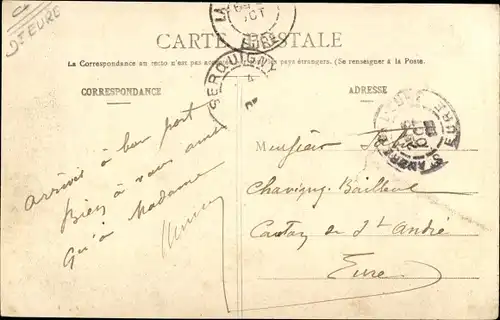 Dt EURE
CARTE POSTALE
La Correspondance au recto n'est pas
pays étrangers. (Se renseigner à la Poste.
CORRESPONDANCE
ADRESSE
SERQUIGNY
OCT
EURE
Arrivés à bon port
Bien à vous ainsi
Qu'à Madame
Monsieur
Chavigny-Bailleul
Canton de St André
Eure